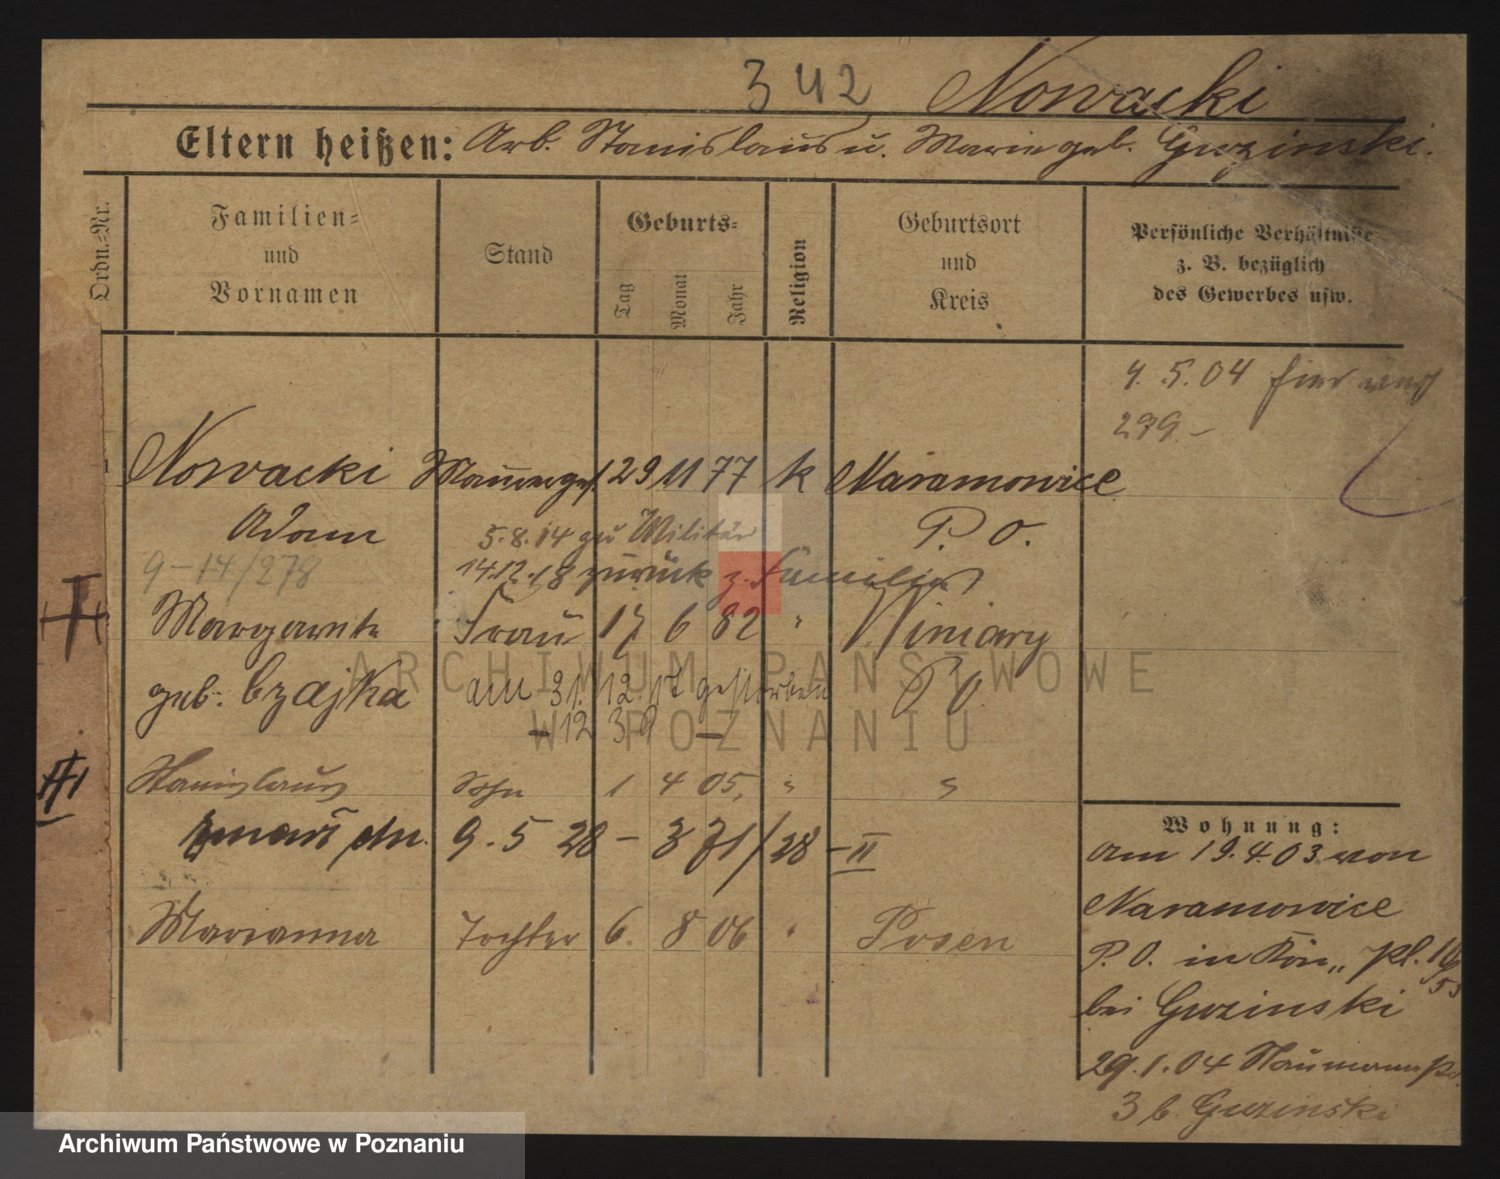 342 Nowacki
Eltern heißen: Arb. Stanislaus u. Marie geb. Guzinski.
Ordn.=Nr.
Familien= und Vornamen
Stand
Geburts=
Tag Monat Jahr
Religion
Geburtsort und Kreis
Persönliche Verhältnisse z. B. bezüglich des Gewerbes usw.
4.5.04
299.–
Nowacki Maurerges. 29 11 77 k Naramowice
Adam 5.8.14 zu Militär P. O.
9–14/278 14.12.18 zurück z. Familie
Margarete Frau 17 6 82 " Winiary
geb. Czajka am 31.12.17 gestorben P. O.
– 12 39 –
Stanislaus Sohn 1 4 05. " "
9.5 28 – 371/28 – II
Marianna Tochter 6. 8 06 " Posen
Wohnung:
am 19.4.03 von
Naramowice
P. O. in Kön. Pl.
bei Guzinski
29.1.04 Naumannstr.
3 b. Guzinski
ARCHIWUM PAŃSTWOWE
W POZNANIU
Archiwum Państwowe w Poznaniu